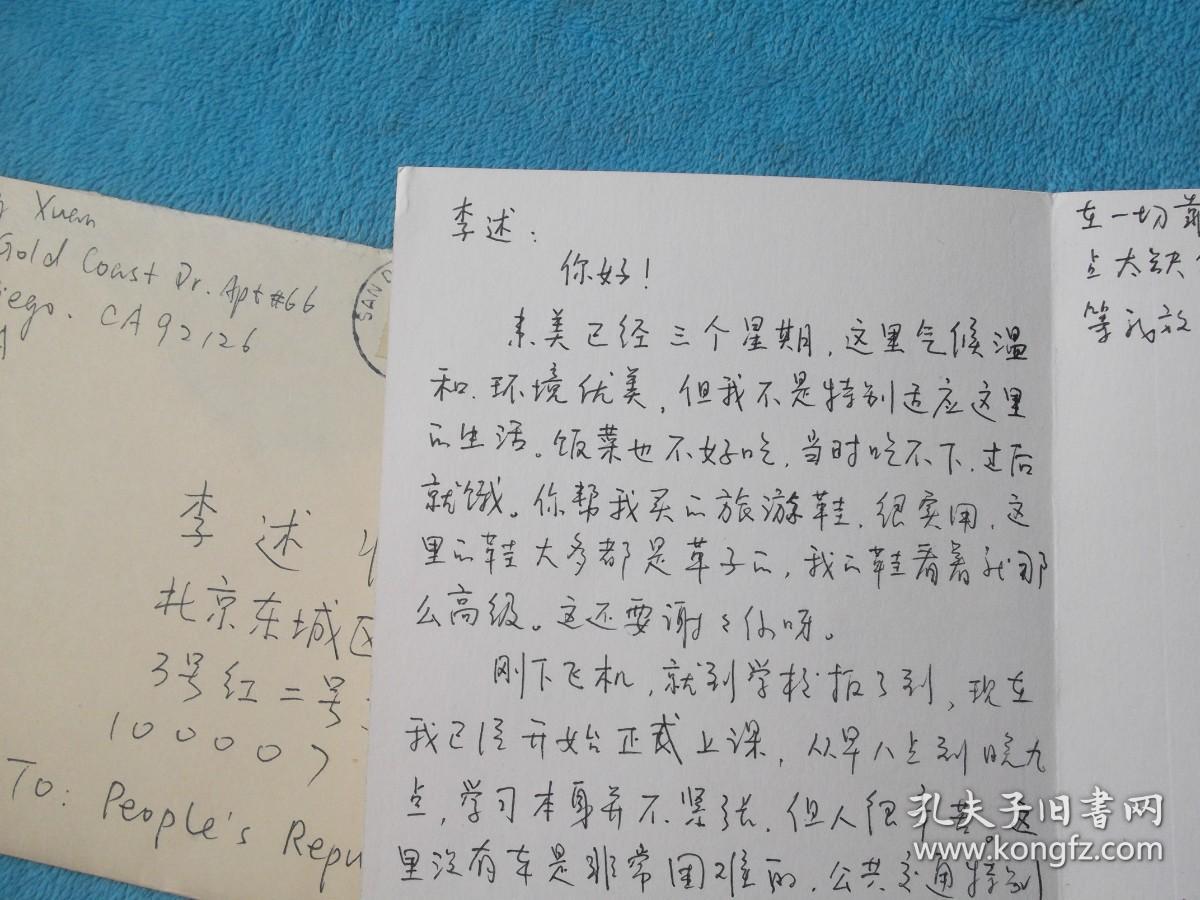 Xuen
Gold Coast Dr. Apt #66
iego. CA 92126
SAN D
李述
北京东城区
3号红二号
100007
To: People's Repu
李述：
你好！
来美已经三个星期，这里气候温
和．环境优美，但我不是特别适应这里
的生活。饭菜也不好吃．当时吃不下．过后
就饿。你帮我买的旅游鞋．很实用．这
里的鞋大多都是草子的，我的鞋看着就那
么高级。这还要谢々你呀。
刚下飞机，就到学校报了到，现在
我已经开始正式上课，从早八点到晚九
点，学习本身并不紧张．但人很辛苦。这
里没有车是非常困难的．公共交通特别
在一切
点太缺
等我放
孔夫子旧书网
www.kongfz.com